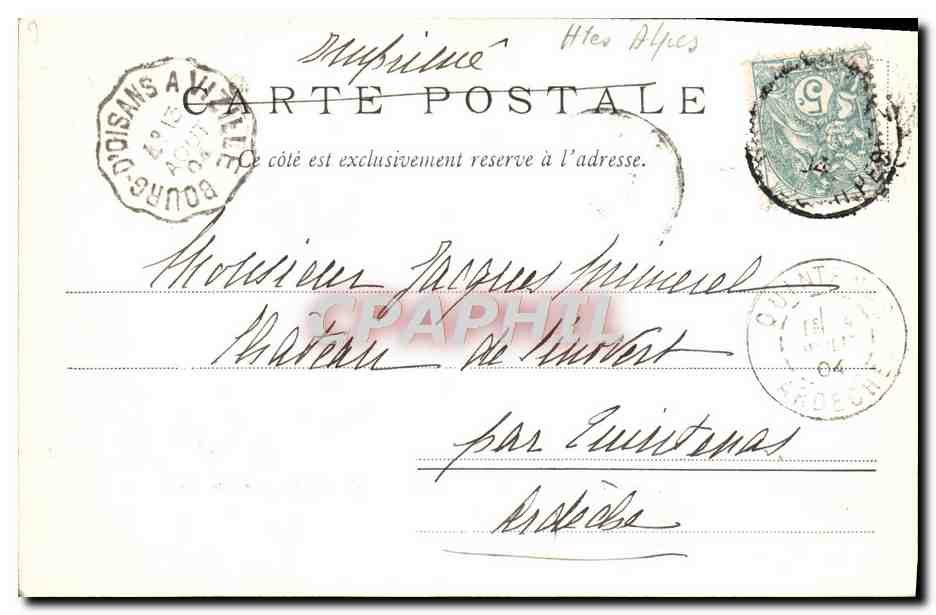 Imprimé
Htes Alpes
CARTE POSTALE
Ce côté est exclusivement reserve à l'adresse.
BOURG-D'OISANS A VIZILLE
4E 13
AOUT
04
5
QUINTENAS
15
04
ARDECHE
Monsieur Jacques Mimerel
Château de
par Quintenas
Ardèche
CPAPHIL